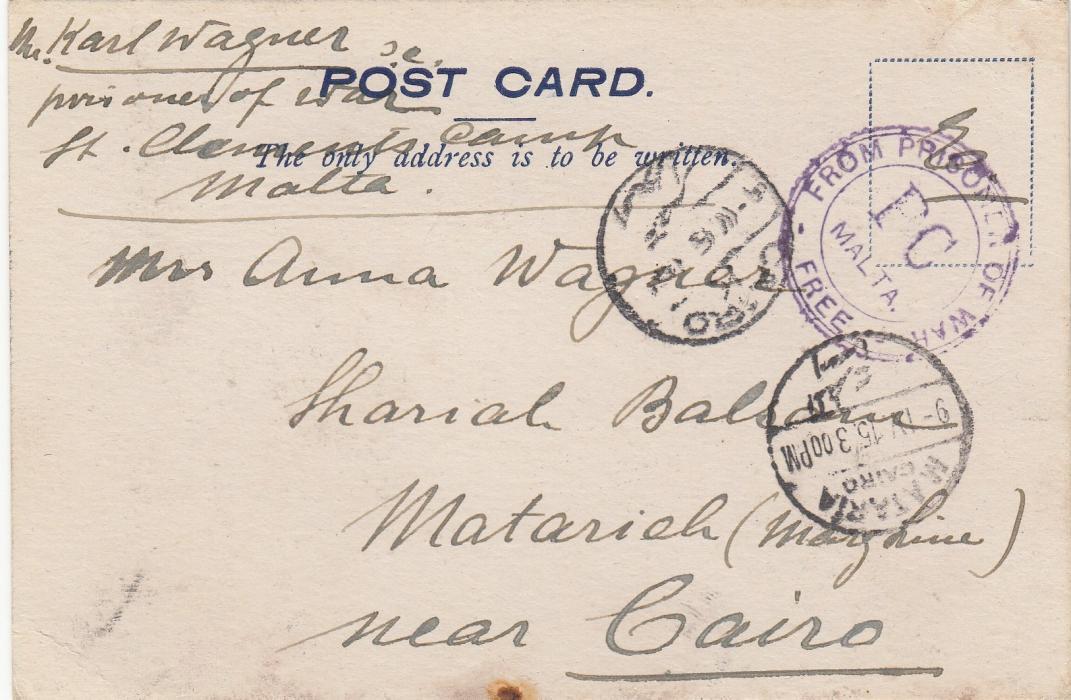 Mr. Karl Wagner se.
prisoner of war
St. Clements Camp
Malta.
POST CARD.
The only address is to be written.
FROM PRISONER OF WAR
FREE
PC
MALTA.
CAIRO
Mrs Anna Wagner
Shariah Balsam
Matarieh (Marg line)
near Cairo
9-IV 15. 3 00PM
MATARIA
CAIRO